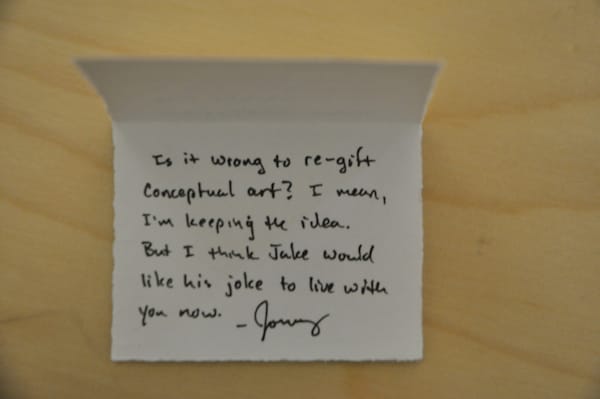 Is it wrong to re-gift
Conceptual art? I mean,
I'm keeping the idea.
But I think Jake would
like his joke to live with
you now. – Jonny